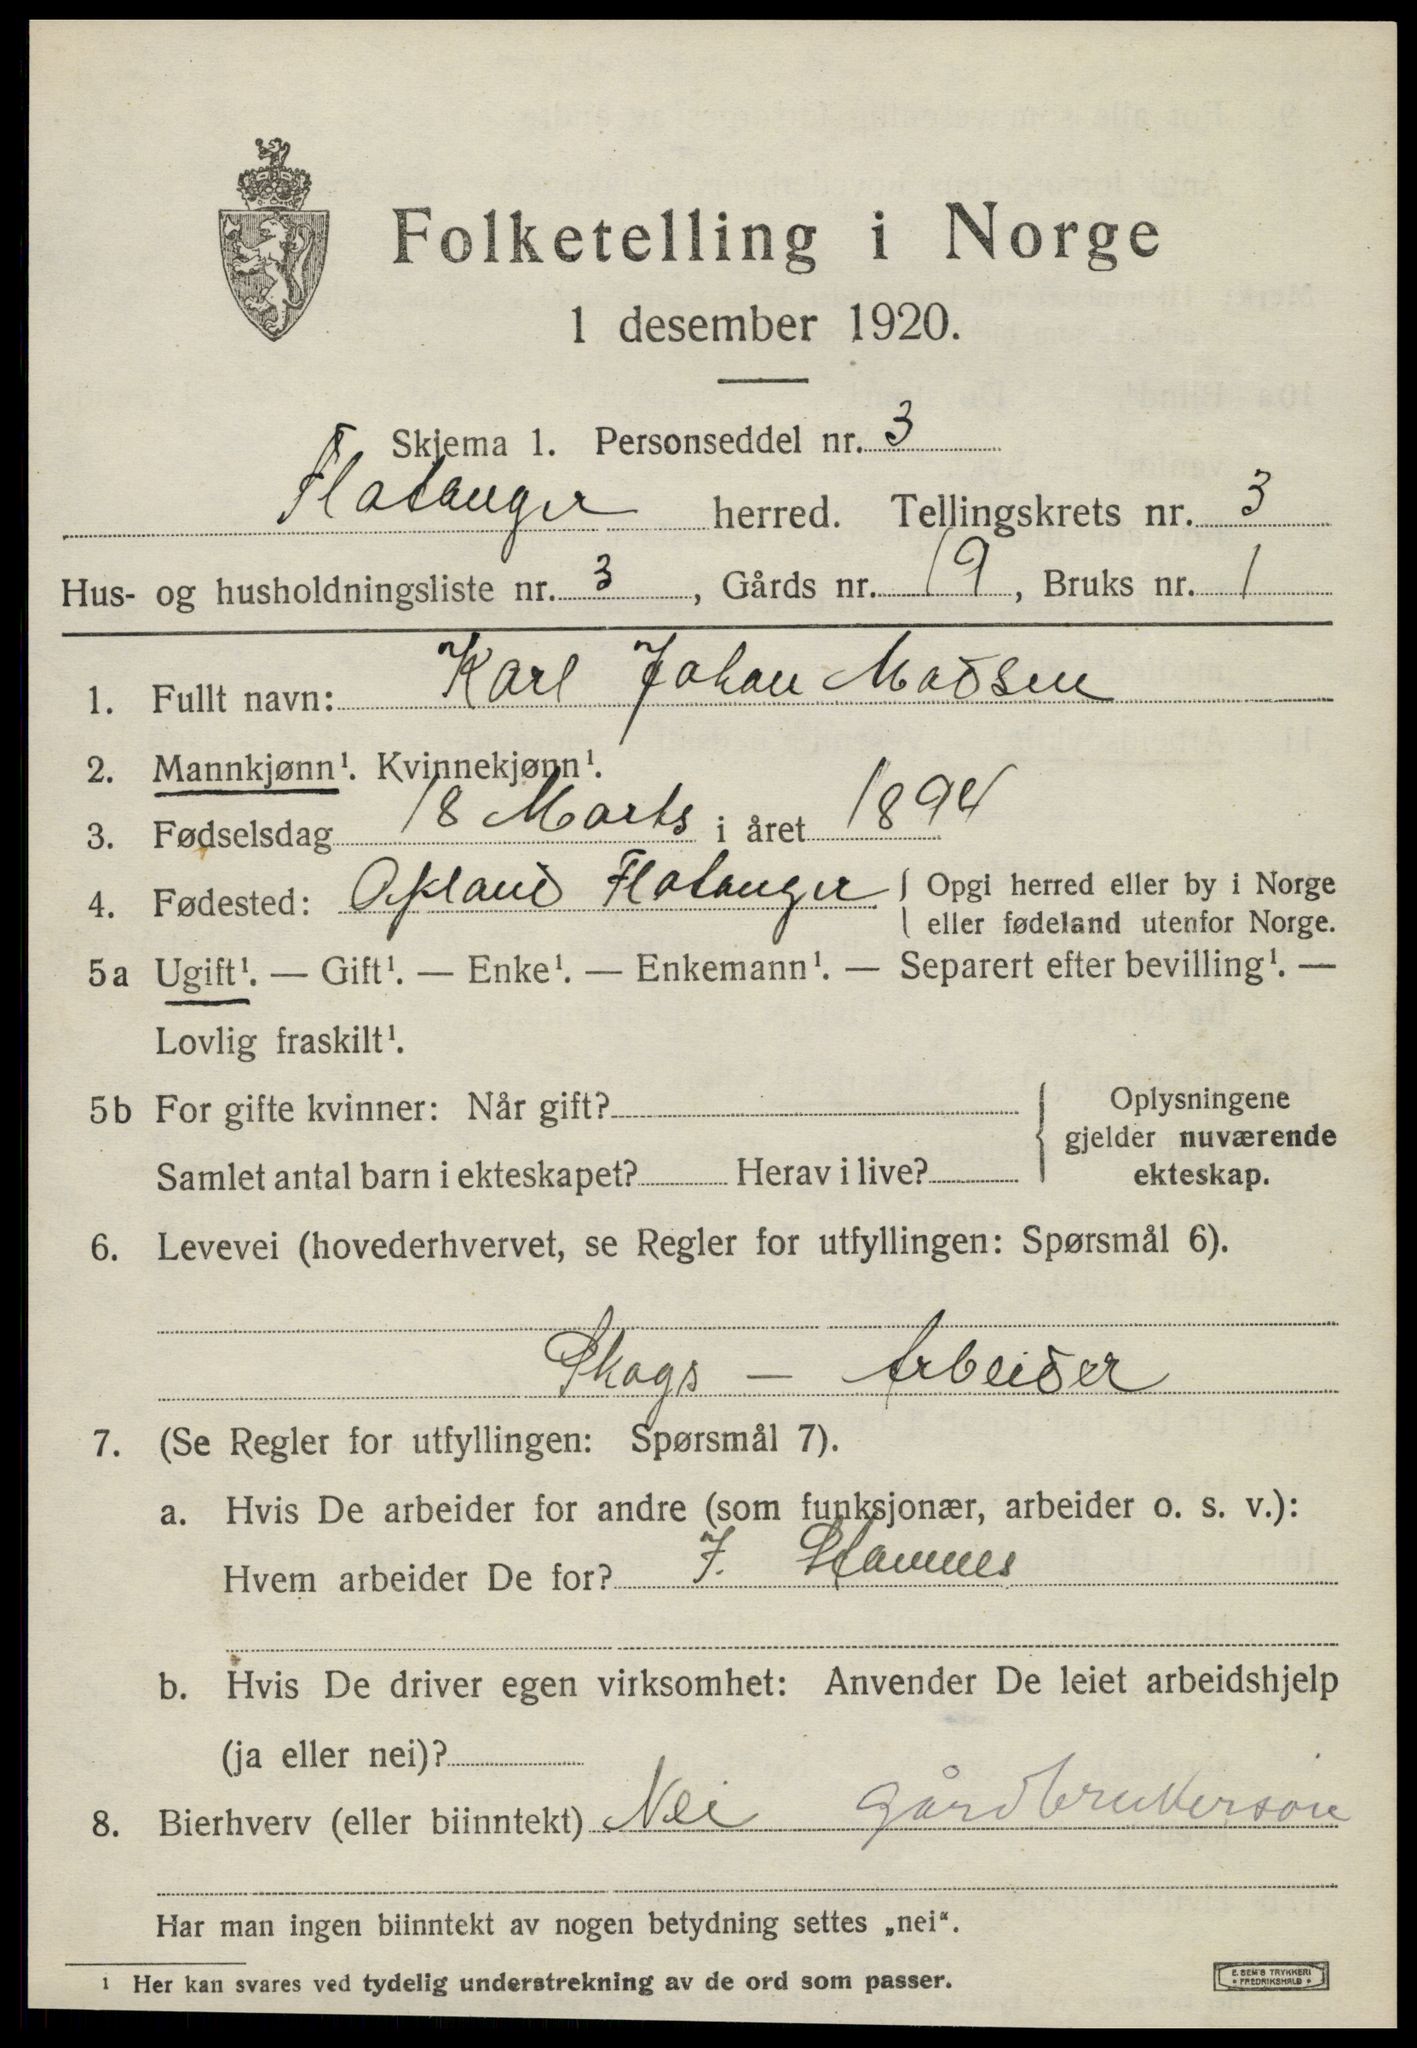 Folketelling i Norge
1 desember 1920.
Skjema 1. Personseddel nr. 3
Flatanger herred. Tellingskrets nr. 3
Hus- og husholdningsliste nr. 3, Gårds nr. 19, Bruks nr. 1
1. Fullt navn: Karl Johan Madsen
2. Mannkjønn¹. Kvinnekjønn¹.
3. Fødselsdag 18 Marts i året 1894
4. Fødested: Opland Flatanger { Opgi herred eller by i Norge
eller fødeland utenfor Norge.
5a Ugift¹. — Gift¹. — Enke¹. — Enkemann¹. — Separert efter bevilling¹. —
Lovlig fraskilt¹.
5b For gifte kvinner: Når gift? { Oplysningene
gjelder nuværende
Samlet antal barn i ekteskapet? Herav i live? ekteskap.
6. Levevei (hovederhvervet, se Regler for utfyllingen: Spørsmål 6).
Skogs — Arbeider
7. (Se Regler for utfyllingen: Spørsmål 7).
a. Hvis De arbeider for andre (som funksjonær, arbeider o. s. v.):
Hvem arbeider De for? J. Stamnes
b. Hvis De driver egen virksomhet: Anvender De leiet arbeidshjelp
(ja eller nei)?
8. Bierhverv (eller biinntekt) Nei gårdbrukersøn
Har man ingen biinntekt av nogen betydning settes „nei“.
¹ Her kan svares ved tydelig understrekning av de ord som passer.
E. SEM'S TRYKKERI
• FREDRIKSHALD •